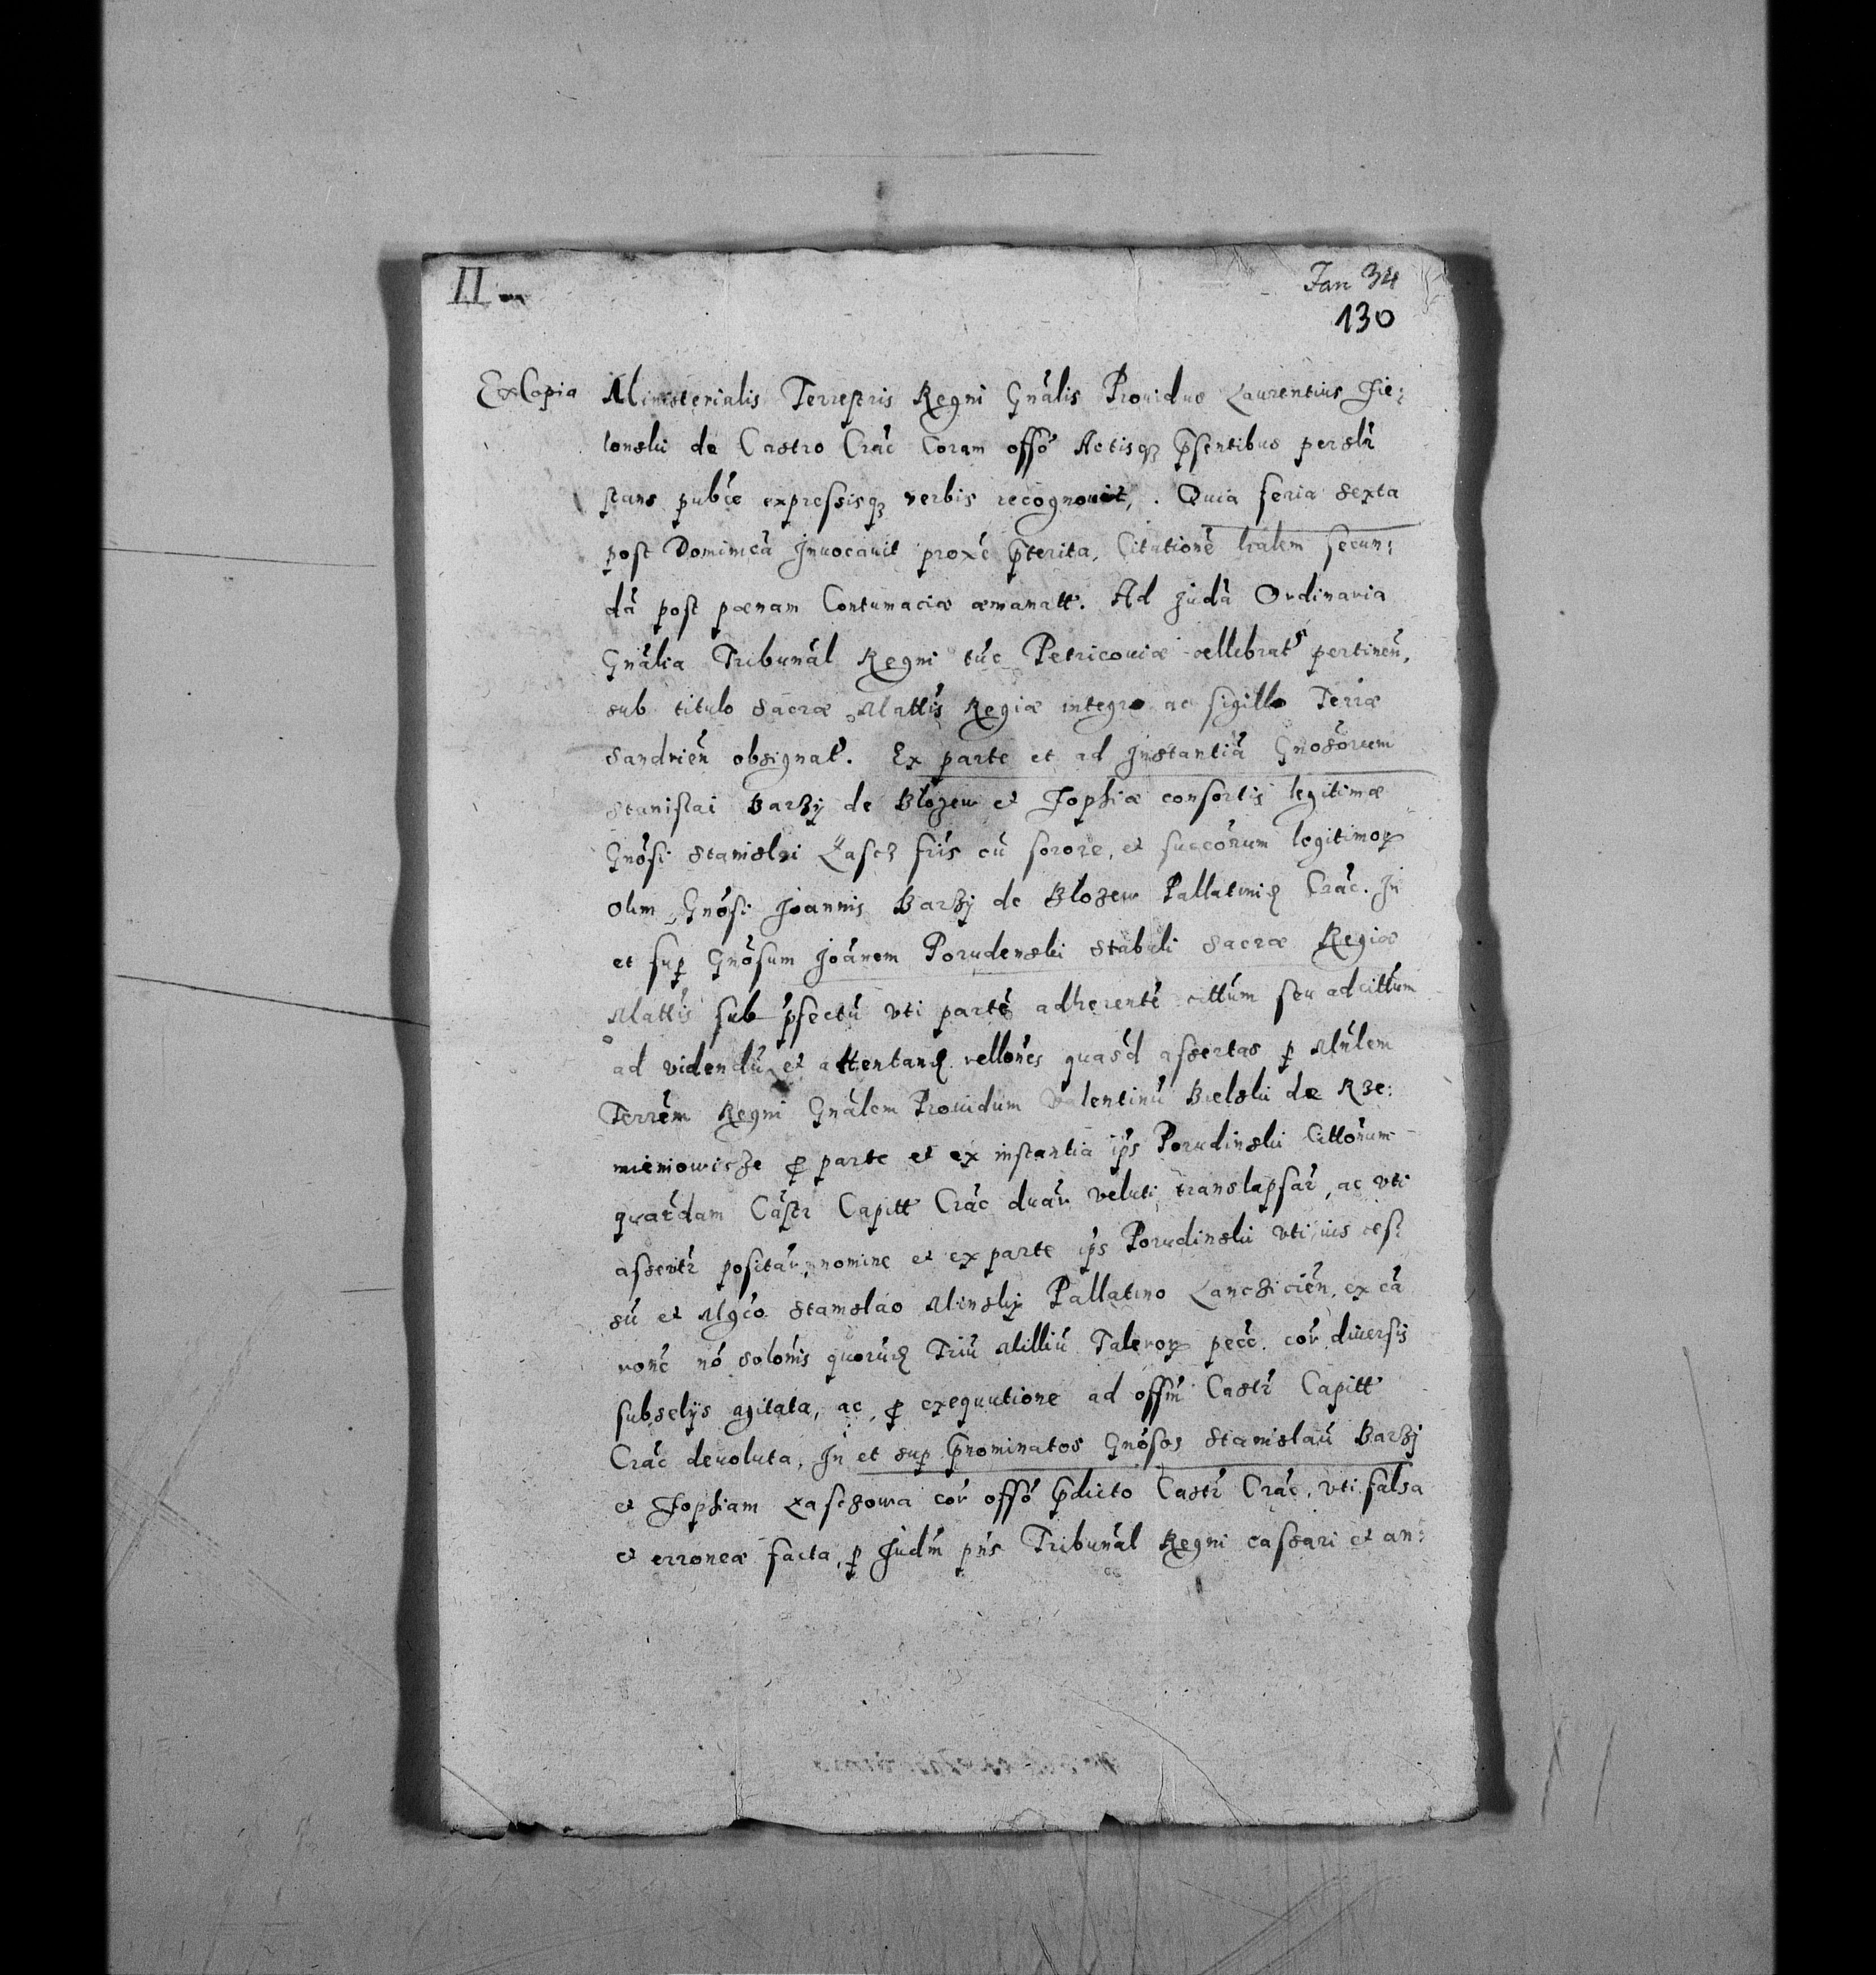 II
Jan 34
130
Ex Copia Ministerialis Terrestris Regni Gnãlis Prouidus Laurentius Zie:
lonski de Castro Crãc Coram offõ Actisq; p̃sentibus persĩr
stans pubce expressisq; verbis recognouit, . Quia feria sexta
post Dominicã Inuocauit proxẽ p̃terita, Citationẽ lralem secun:
dã post pœnam Contumaciæ æmanatt. Ad Judã Ordinaria
Gnãlia Tribunãl Regni tũc Petricouiæ cellebrat pertineñ,
sub titulo Sacræ Mattis Regiæ integro ac sigillo Terræ
Sandrieñ obsignat. Ex parte et ad Instantiã Gnosorum
Stanislai Barzÿ de Blozew et Zophiæ consortis legitimæ
Gnosi Stanislai Łascz fris cũ sorore, et succorum legitimor
olim Gnosi Joannis Barzÿ de Blozew Pallatini Crãc. In
et sup Gnosum Joãnem Porudenski Stabuli Sacræ Regiæ
Mattis sub p̃fectũ vti partẽ adherentẽ cittum seu adcittum
ad videndũ et attentand rellones quasd assertas p Mnlem
Terrẽm Regni Gnãlem Prouidum Valentinũ Bielski de Rze:
mieniowisze p parte et ex instantia ips Porudinski Cittonum
quardam Castr Capitt Crãc duar veluti translapsar, ac vti
asseritr positar, nomine et ex parte ips Porudinski vti ius ces:
sũ et Mgco Stanislao Minsky Pallatino Lancicieñ, ex cã
rone nõ solonis quorud Triũ Milliũ Taleror pecc. cor diuersis
subselÿs agitata, ac p exequutione ad offm Castr Capitt
Crãc deuoluta, In et sup p̃nominatos Gnosos Stanislaũ Barzÿ
et Zophiam Łasczowa cor offõ p̃dicto Castr Crãc, vti falsa
et erronea facta, p Judm pns Tribunãl Regni cassari et an: